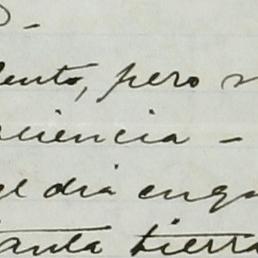 ento, pero
ciencia -
el dia en q
anta tierra